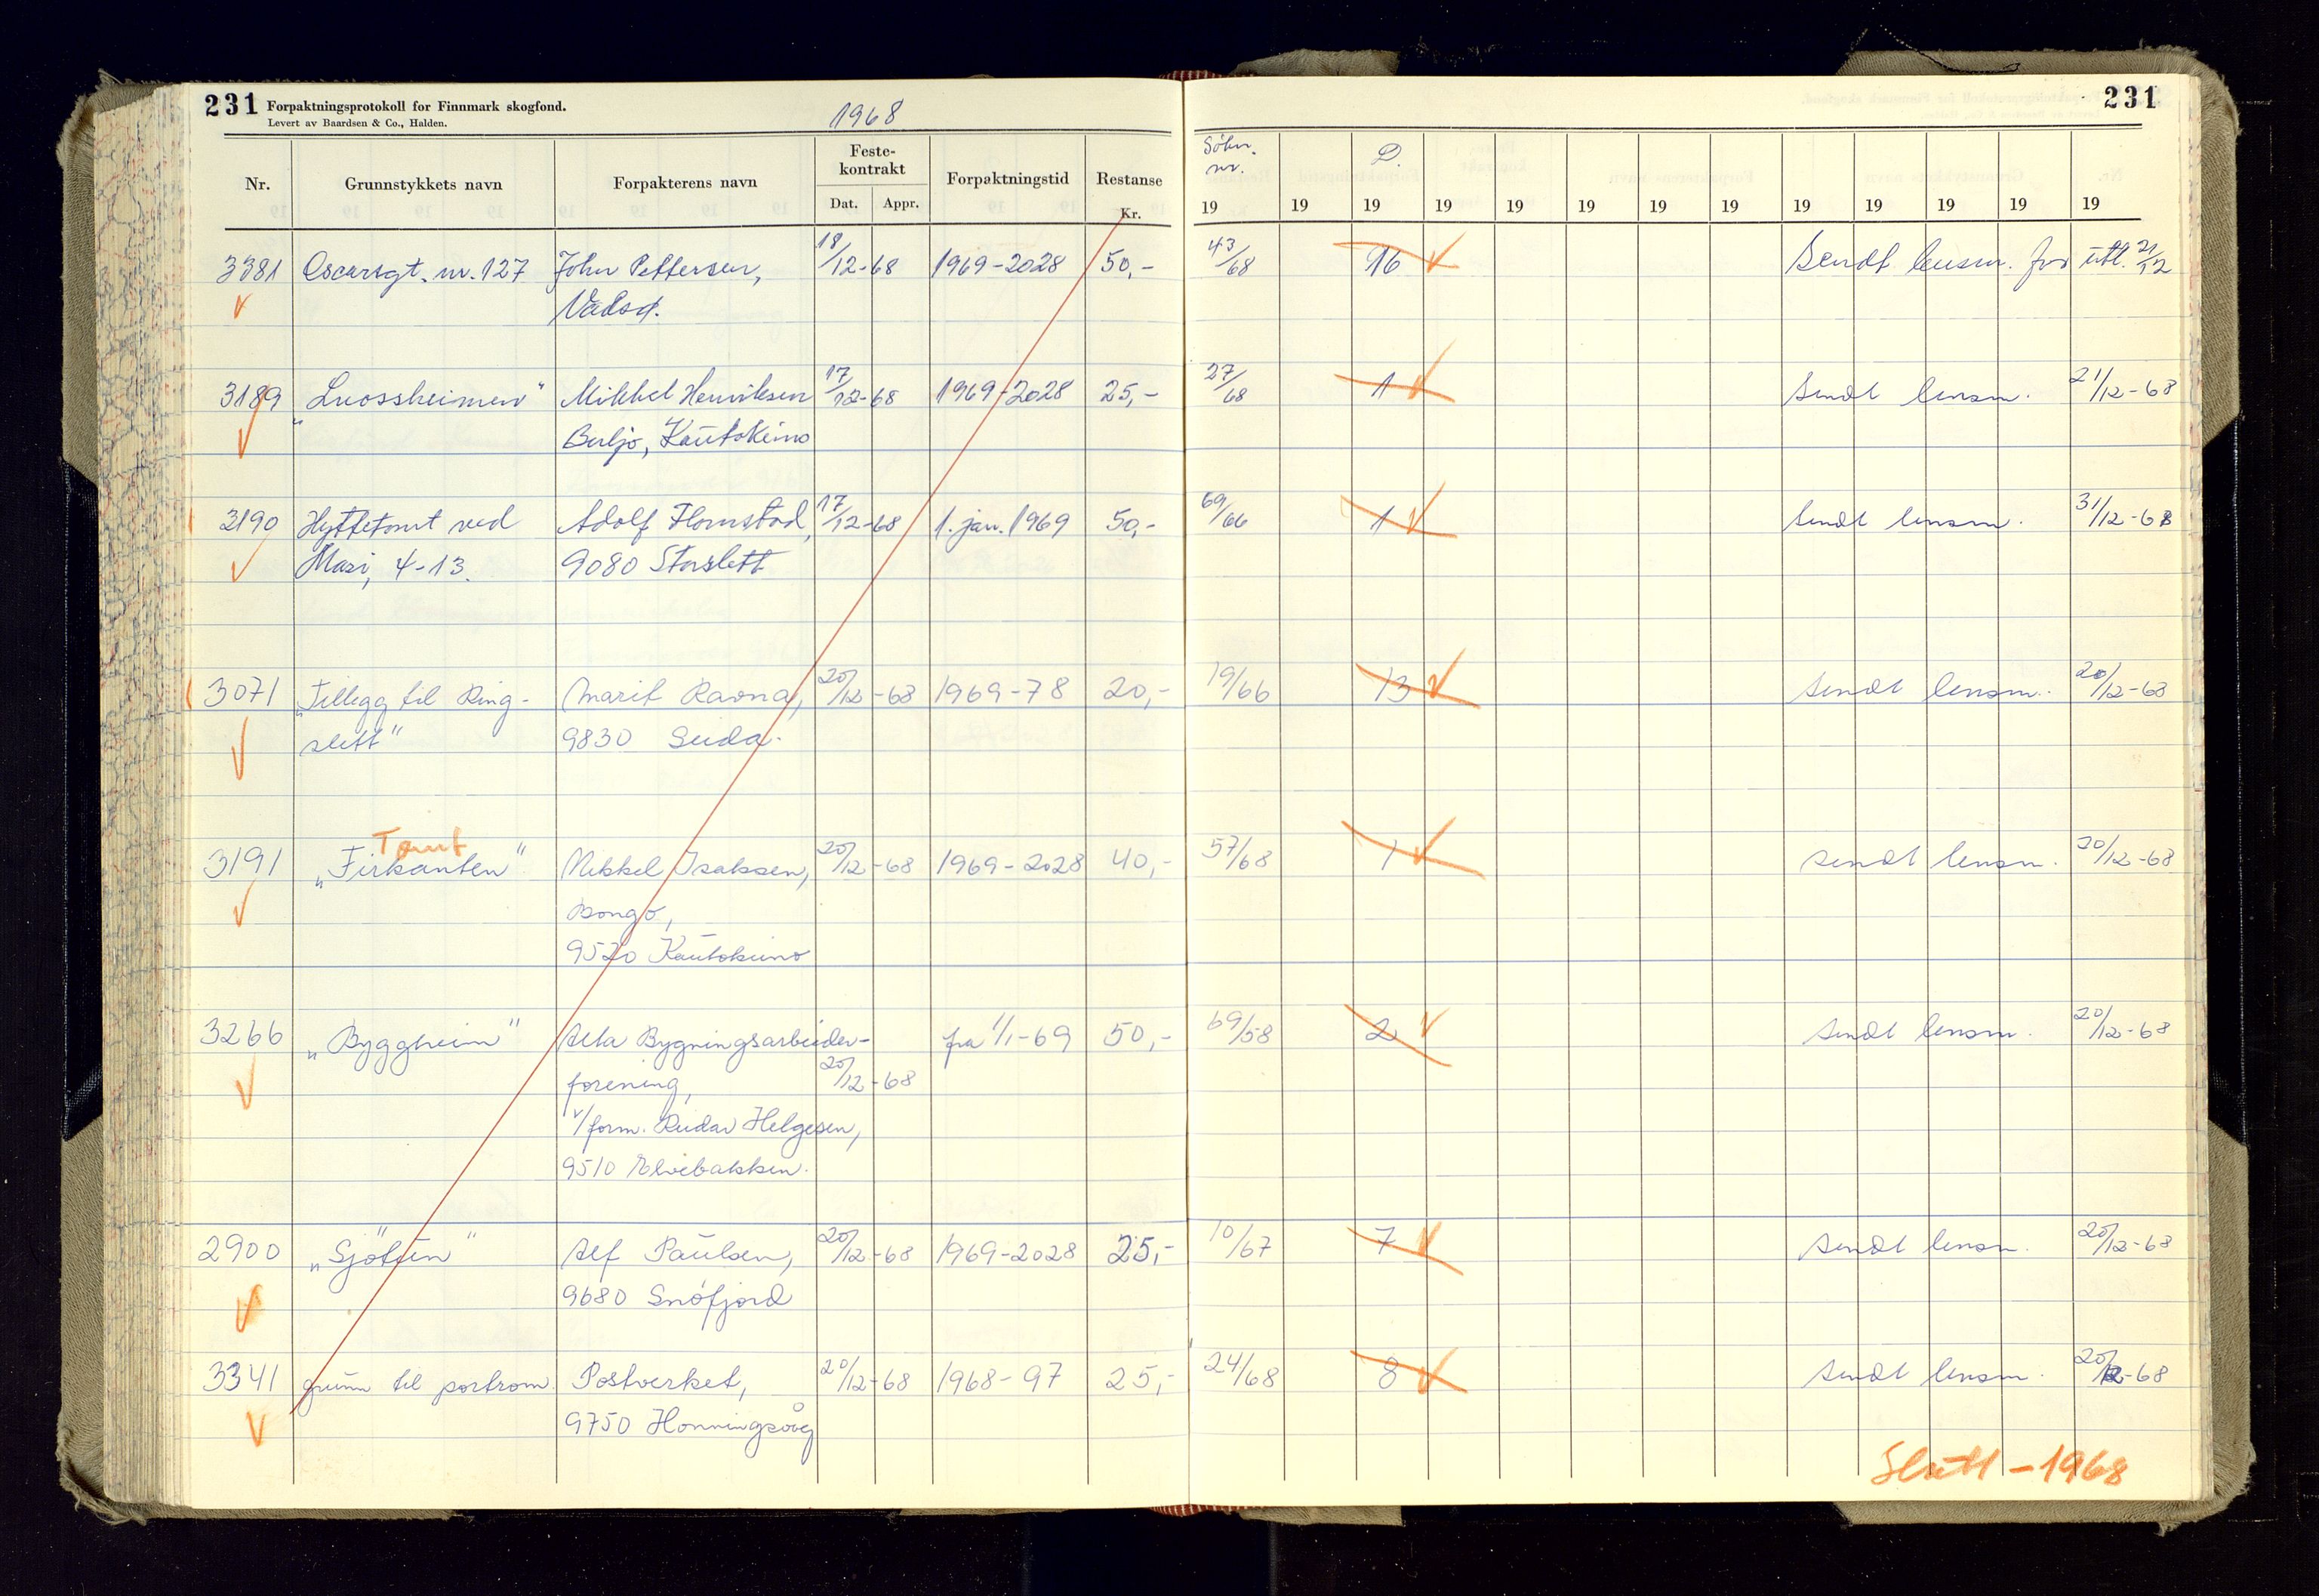 231 Forpaktningsprotokoll for Finnmark skogfond. 1968 231
Levert av Baardsen & Co., Halden.
Nr. Grunnstykkets navn Forpakterens navn Feste-kontrakt Dat. Appr. Forpaktningstid Restanse Kr. Søkn. nr. D.
19 19 19 19 19 19 19 19 19 19 19 19 19
3381 Oscarsgt. nr. 127 John Pettersen, 18/12-68 1969-2028 50,- 43/68 16 Sendt lensm. for utl. 21/12
Vadsø.
3189 "Luossheimen" Mikkel Henriksen 17/12-68 1969-2028 25,- 27/68 1 Sendt lensm. 21/12-68
Buljo, Kautokeino
3190 Hyttetomt ved Adolf Flomstad, 17/12-68 1. jan. 1969 50,- 69/66 1 Sendt lensm. 31/12-68
Masi, 4-13. 9080 Storslett
3071 "Tillegg til Ring- Marit Ravna, 20/12-68 1969-78 20,- 19/66 13 Sendt lensm. 20/12-68
slett" 9830 Seida.
Tomt
3191 "Firkanten" Mikkel Isaksen, 20/12-68 1969-2028 40,- 57/68 1 Sendt lensm. 20/12-68
Bongo,
9520 Kautokeino
3266 "Byggheim" Alta Bygningsarbeider- fra 1/1-69 50,- 69/58 2 Sendt lensm. 20/12-68
forening, 20/12-68
v/form. Reidar Helgesen,
9510 Elvebakken.
2900 "Sjøtun" Alf Paulsen, 20/12-68 1969-2028 25,- 10/67 7 Sendt lensm. 20/12-68
9680 Snøfjord
3341 grunn til postrom Postverket, 20/12-68 1968-97 25,- 24/68 8 Sendt lensm. 20/12-68
9750 Honningsvåg
Slutt - 1968